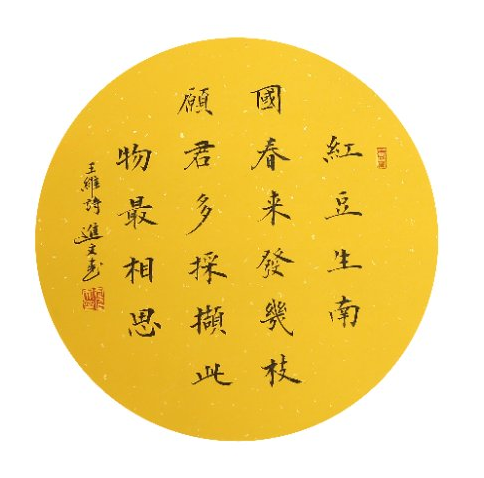 紅豆生南
國春来發幾枝
願君多採擷此
物最相思
王維詩 進文書